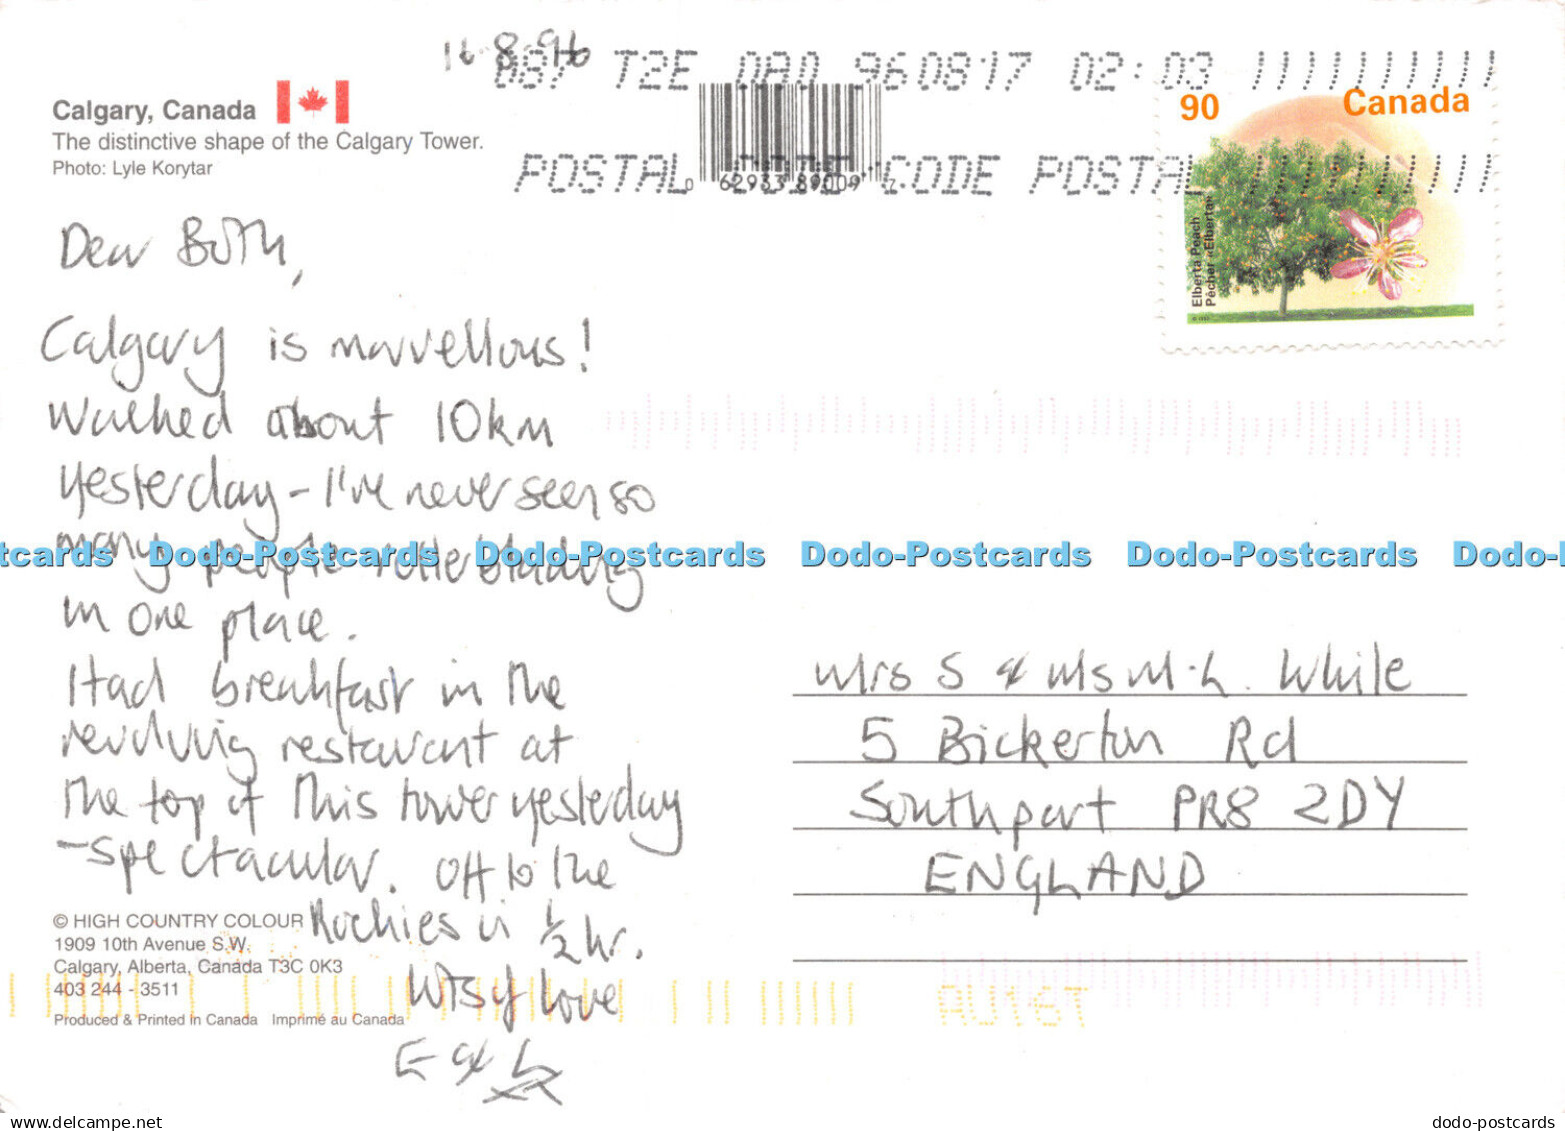 16-8-96
087 T2E 960817 02:03
POSTAL CODE POSTAL
0 62933 89009 7
90 Canada
Elberta Peach
Pêcher «Elberta»
Calgary, Canada
The distinctive shape of the Calgary Tower.
Photo: Lyle Korytar
Dear Both,
Calgary is marvellous!
Walked about 10km
yesterday - I've never seen so
many people rollerblading
in one place.
Had breakfast in the
revolving restaurant at
the top of this tower yesterday
- spectacular. Off to the
Rockies in ½ hr.
love
E & L
xx
Mrs S & Ms M.L. White
5 Bickerton Rd
Southport PR8 2DY
ENGLAND
© HIGH COUNTRY COLOUR
1909 10th Avenue S.W.
Calgary, Alberta, Canada T3C 0K3
403 244 - 3511
Produced & Printed in Canada Imprimé au Canada
AU16T
tcards Dodo-Postcards Dodo-Postcards Dodo-Postcards Dodo-Postcards Dodo-
www.delcampe.net
dodo-postcards